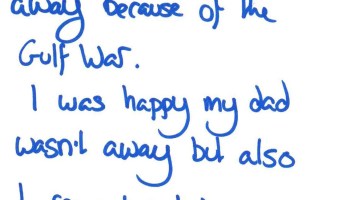 away because of the
Gulf War.
I was happy my dad
wasn't away but also
I